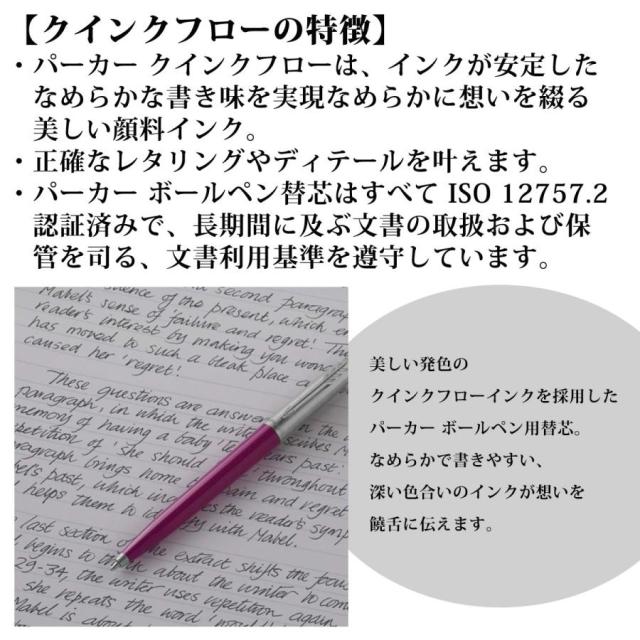 【クインクフローの特徴】
・パーカー クインクフローは、インクが安定した
なめらかな書き味を実現なめらかに想いを綴る
美しい顔料インク。
・正確なレタリングやディテールを叶えます。
・パーカー ボールペン替芯はすべて ISO 12757.2
認証済みで、長期間に及ぶ文書の取扱および保
管を司る、文書利用基準を遵守しています。
science of the present, which
second paragraph
Mabel's sense of 'failure and regret'. The
reader's interest by making you wonder
has moved to such a bleak place a
caused her 'regret'.
These questions are answered in the
paragraph, in which the writer describes Mabel
memory of having a baby 'ten years past'.
petition of 'she should' throughout
aragraph brings home pain and regret
el's past, which increases the reader's symp
helps them to identify with Mabel.
last section of the extract shifts the focus
begins to think about the writer to com
29-34, the writer uses repetition again
she repeats the word 'would'
Mabel is about
美しい発色の
クインクフローインクを採用した
パーカー ボールペン用替芯。
なめらかで書きやすい、
深い色合いのインクが想いを
饒舌に伝えます。